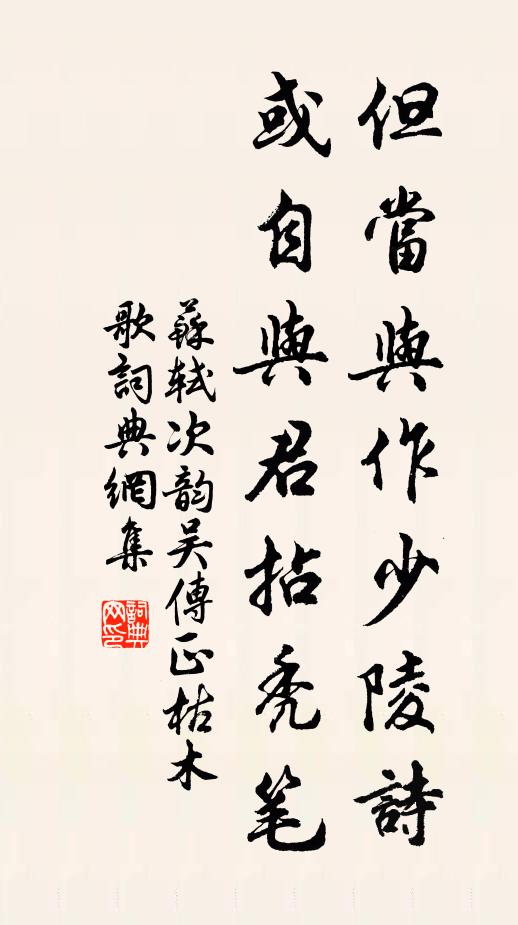 但當與作少陵詩
或自與君拈禿笔
蘇軾次韵吴傳正枯木
歌詞典網集
詞典网印